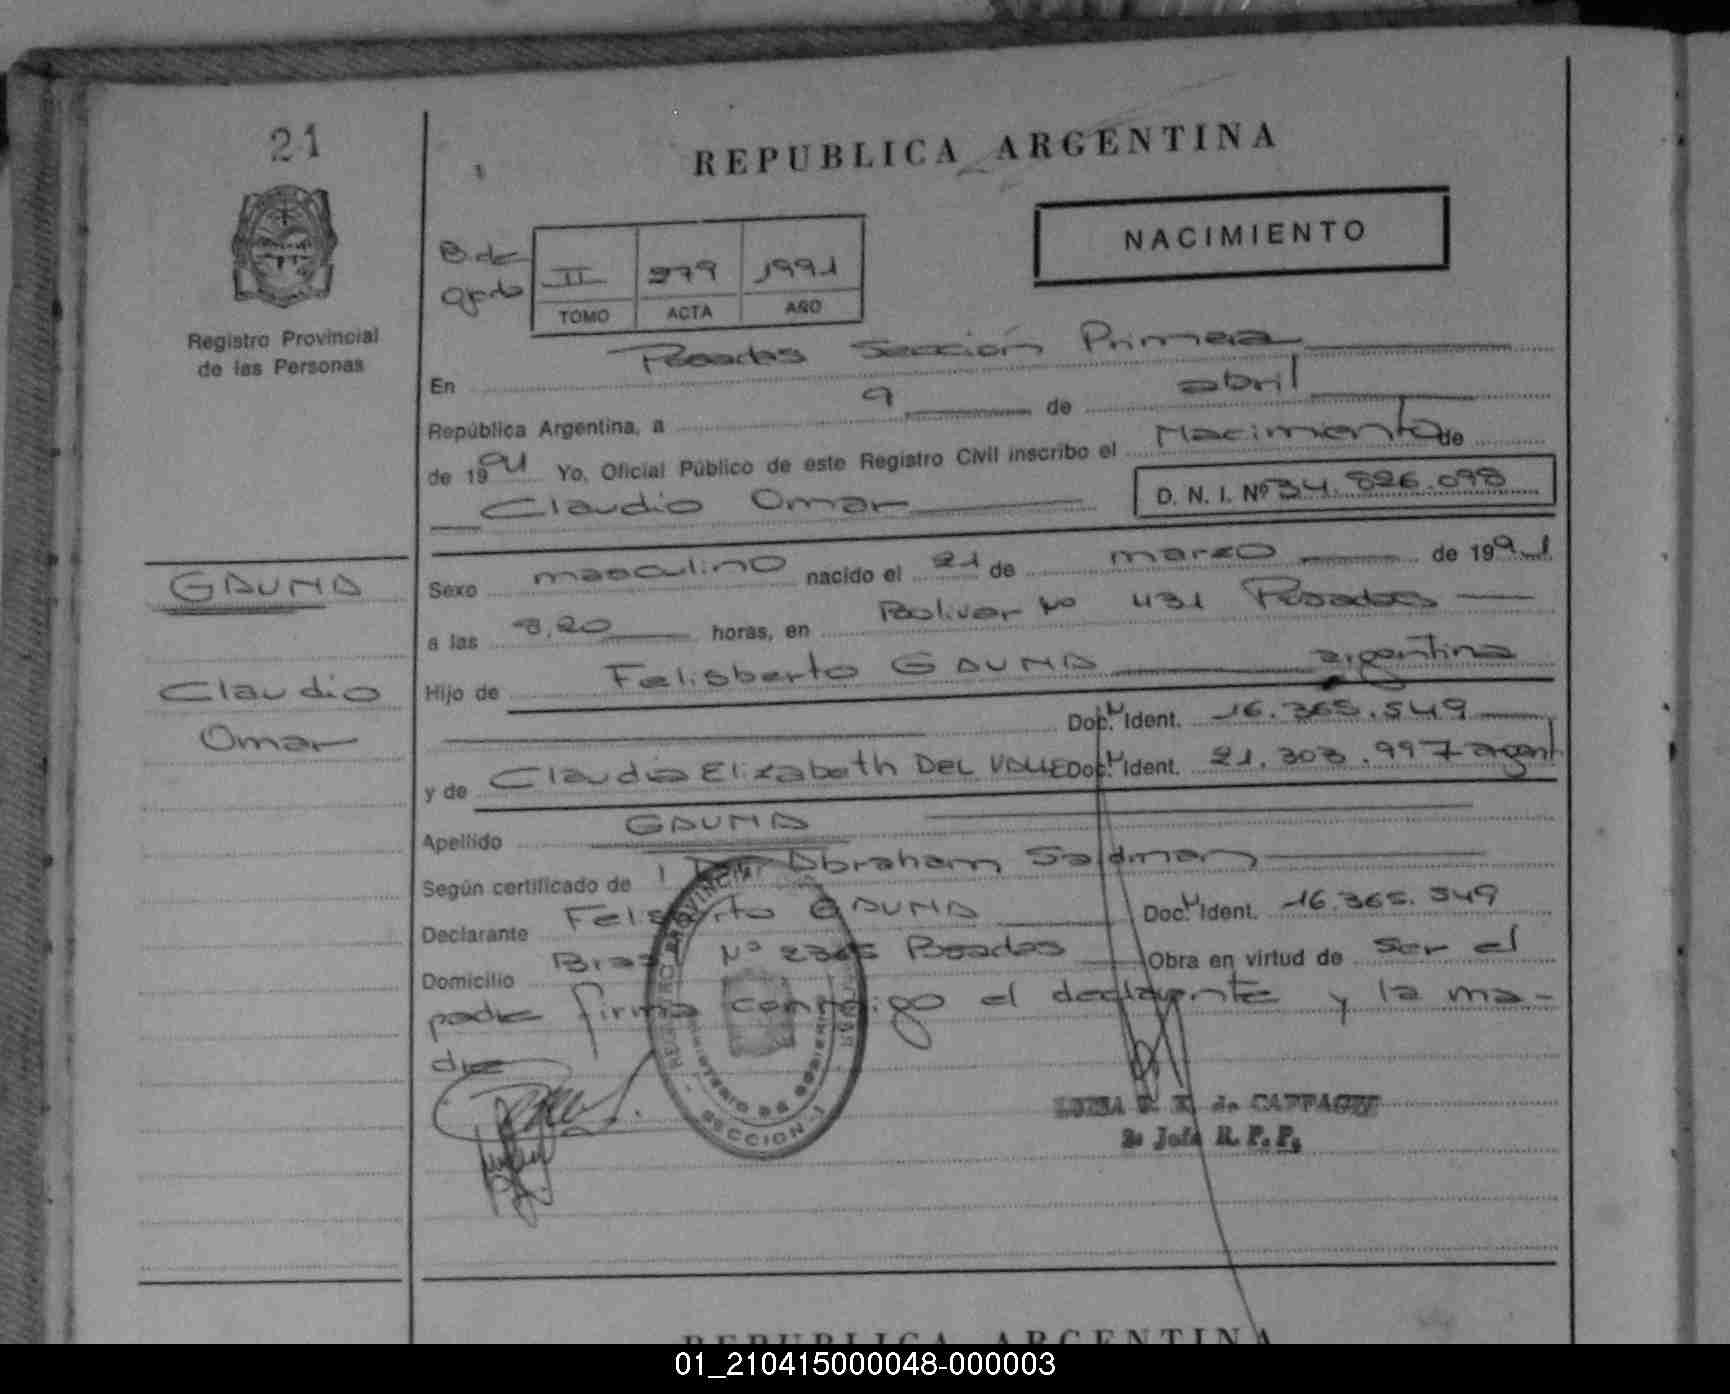 21
REPUBLICA ARGENTINA
NACIMIENTO
B. de
II 379 1991
TOMO ACTA AÑO
Registro Provincial
de las Personas
En Posadas Sección Primera
República Argentina, a 9 de abril
de 1991 Yo, Oficial Público de este Registro Civil inscribo el Nacimiento de
Claudio Omar D. N. I. Nº 34.826.098
GAUNA
Sexo masculino nacido el 21 de marzo de 1991
a las 8,20 horas, en Bolivar Nº 431 Posadas
Claudio
Omar
Hijo de Felisberto GAUNA argentina
Doc. Ident. 16.365.549
y de Claudia Elizabeth DEL VALLE Doc. Ident. 21.303.997 argent
Apellido GAUNA
Según certificado de Abraham Saldman
Declarante Felisberto GAUNA Doc. Ident. 16.365.549
Domicilio Brasil Nº 2365 Posadas Obra en virtud de ser el
padre firma conmigo el declarante y la ma-
dre
MINISTERIO DE GOBIERNO
SECCION-1
LUISA de
2º Jefe R. P. P.
REPUBLICA ARGENTINA
01_210415000048-000003